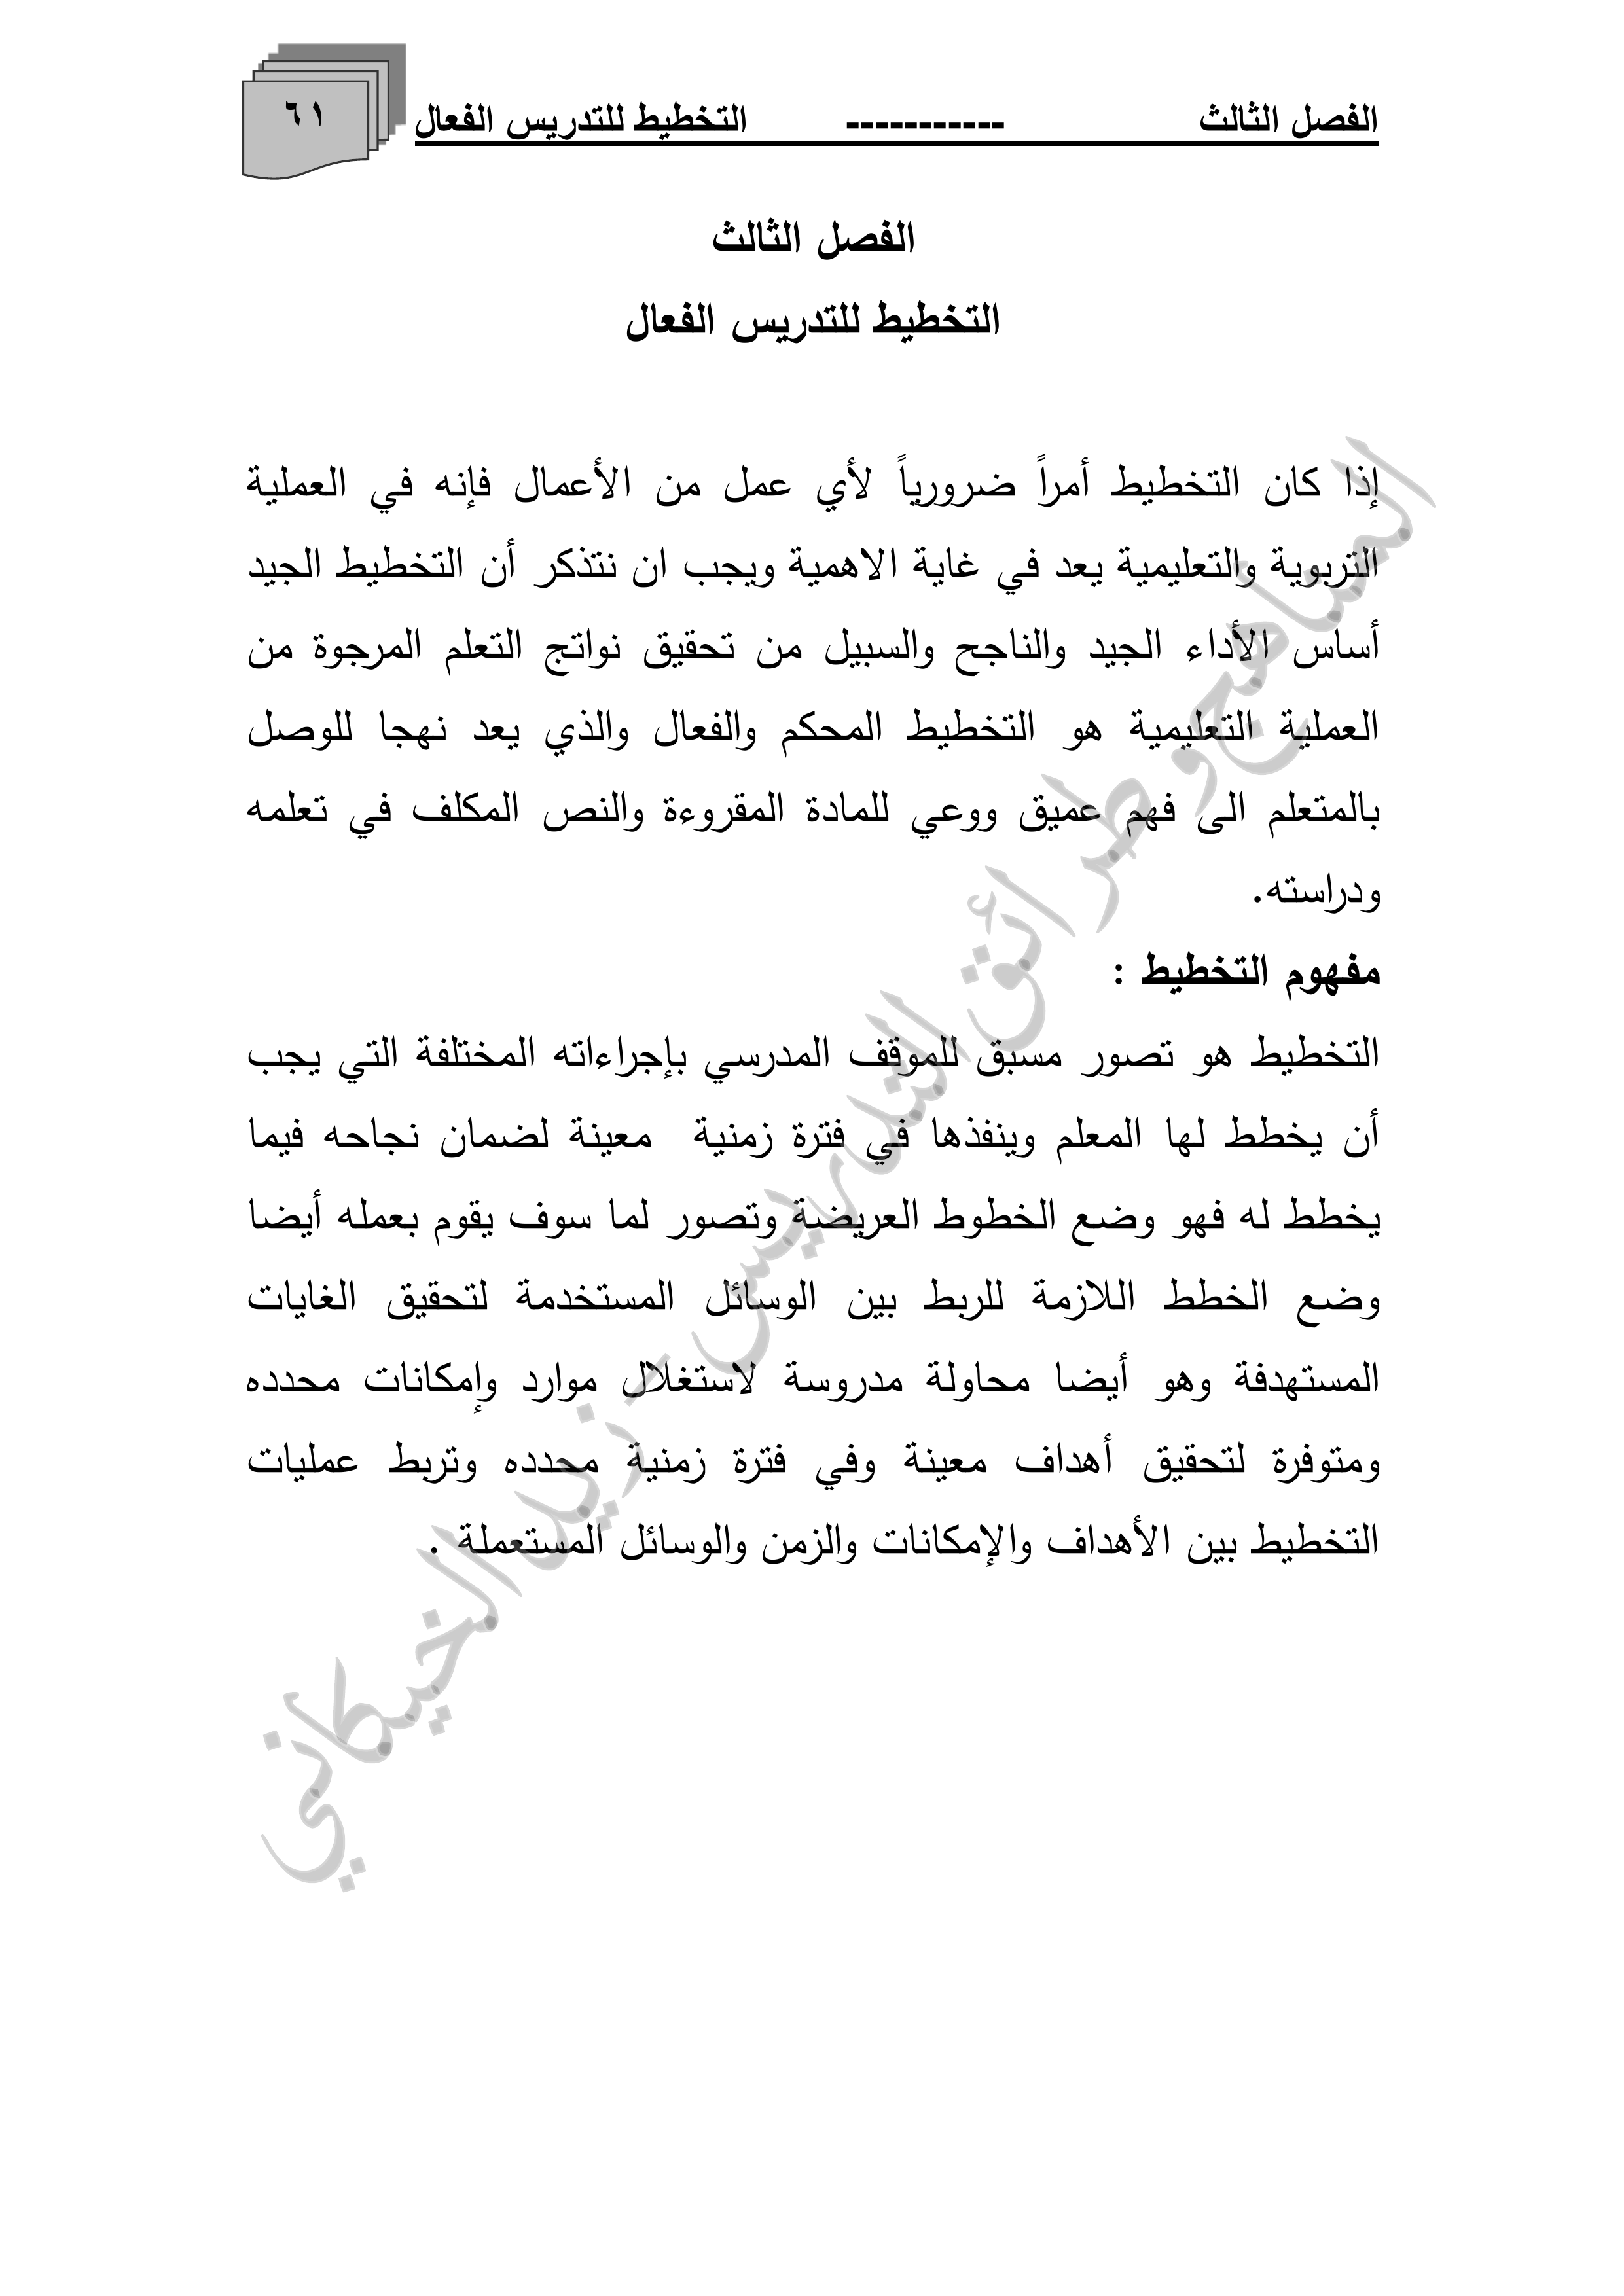 الفصل الثالث ----------- التخطيط للتدريس الفعال ٦١
الفصل الثالث
التخطيط للتدريس الفعال
إذا كان التخطيط أمراً ضرورياً لأي عمل من الأعمال فإنه في العملية
التربوية والتعليمية يعد في غاية الاهمية ويجب ان نتذكر أن التخطيط الجيد
أساس الأداء الجيد والناجح والسبيل من تحقيق نواتج التعلم المرجوة من
العملية التعليمية هو التخطيط المحكم والفعال والذي يعد نهجا للوصل
بالمتعلم الى فهم عميق ووعي للمادة المقروءة والنص المكلف في تعلمه
ودراسته.
مفهوم التخطيط :
التخطيط هو تصور مسبق للموقف المدرسي بإجراءاته المختلفة التي يجب
أن يخطط لها المعلم وينفذها في فترة زمنية معينة لضمان نجاحه فيما
يخطط له فهو وضع الخطوط العريضة وتصور لما سوف يقوم بعمله أيضا
وضع الخطط اللازمة للربط بين الوسائل المستخدمة لتحقيق الغايات
المستهدفة وهو أيضا محاولة مدروسة لاستغلال موارد وإمكانات محدده
ومتوفرة لتحقيق أهداف معينة وفي فترة زمنية محدده وتربط عمليات
التخطيط بين الأهداف والإمكانات والزمن والوسائل المستعملة .
المناهج وطرائق التدريس - زيد الخيكاني